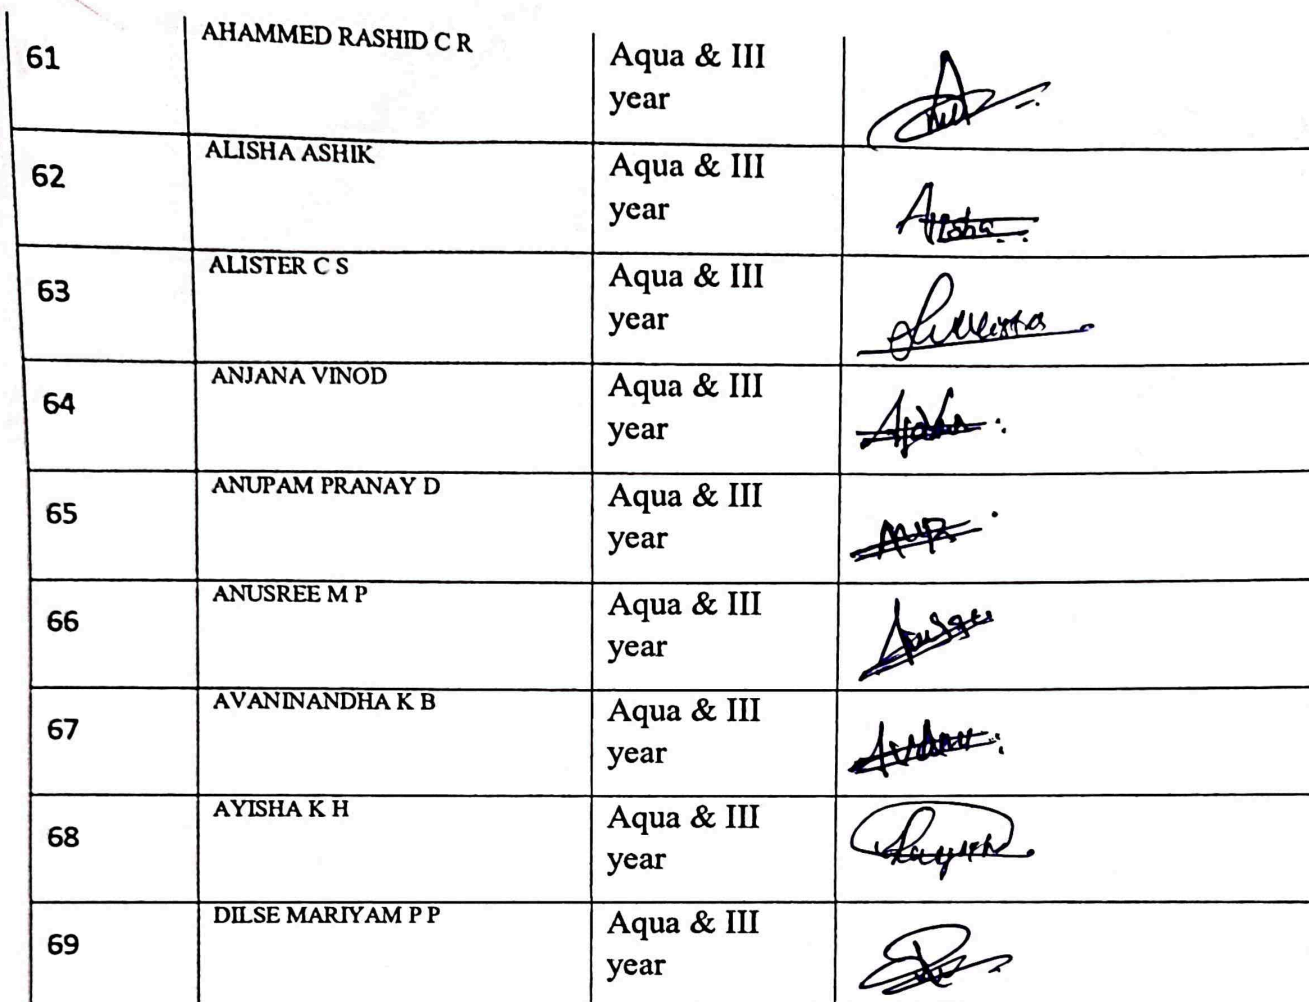 61 AHAMMED RASHID C R Aqua & III
year
62 ALISHA ASHIK Aqua & III
year
Alisha
63 ALISTER C S Aqua & III
year
64 ANJANA VINOD Aqua & III
year
65 ANUPAM PRANAY D Aqua & III
year
66 ANUSREE M P Aqua & III
year
67 AVANINANDHA K B Aqua & III
year
68 AYISHA K H Aqua & III
year
69 DILSE MARIYAM P P Aqua & III
year